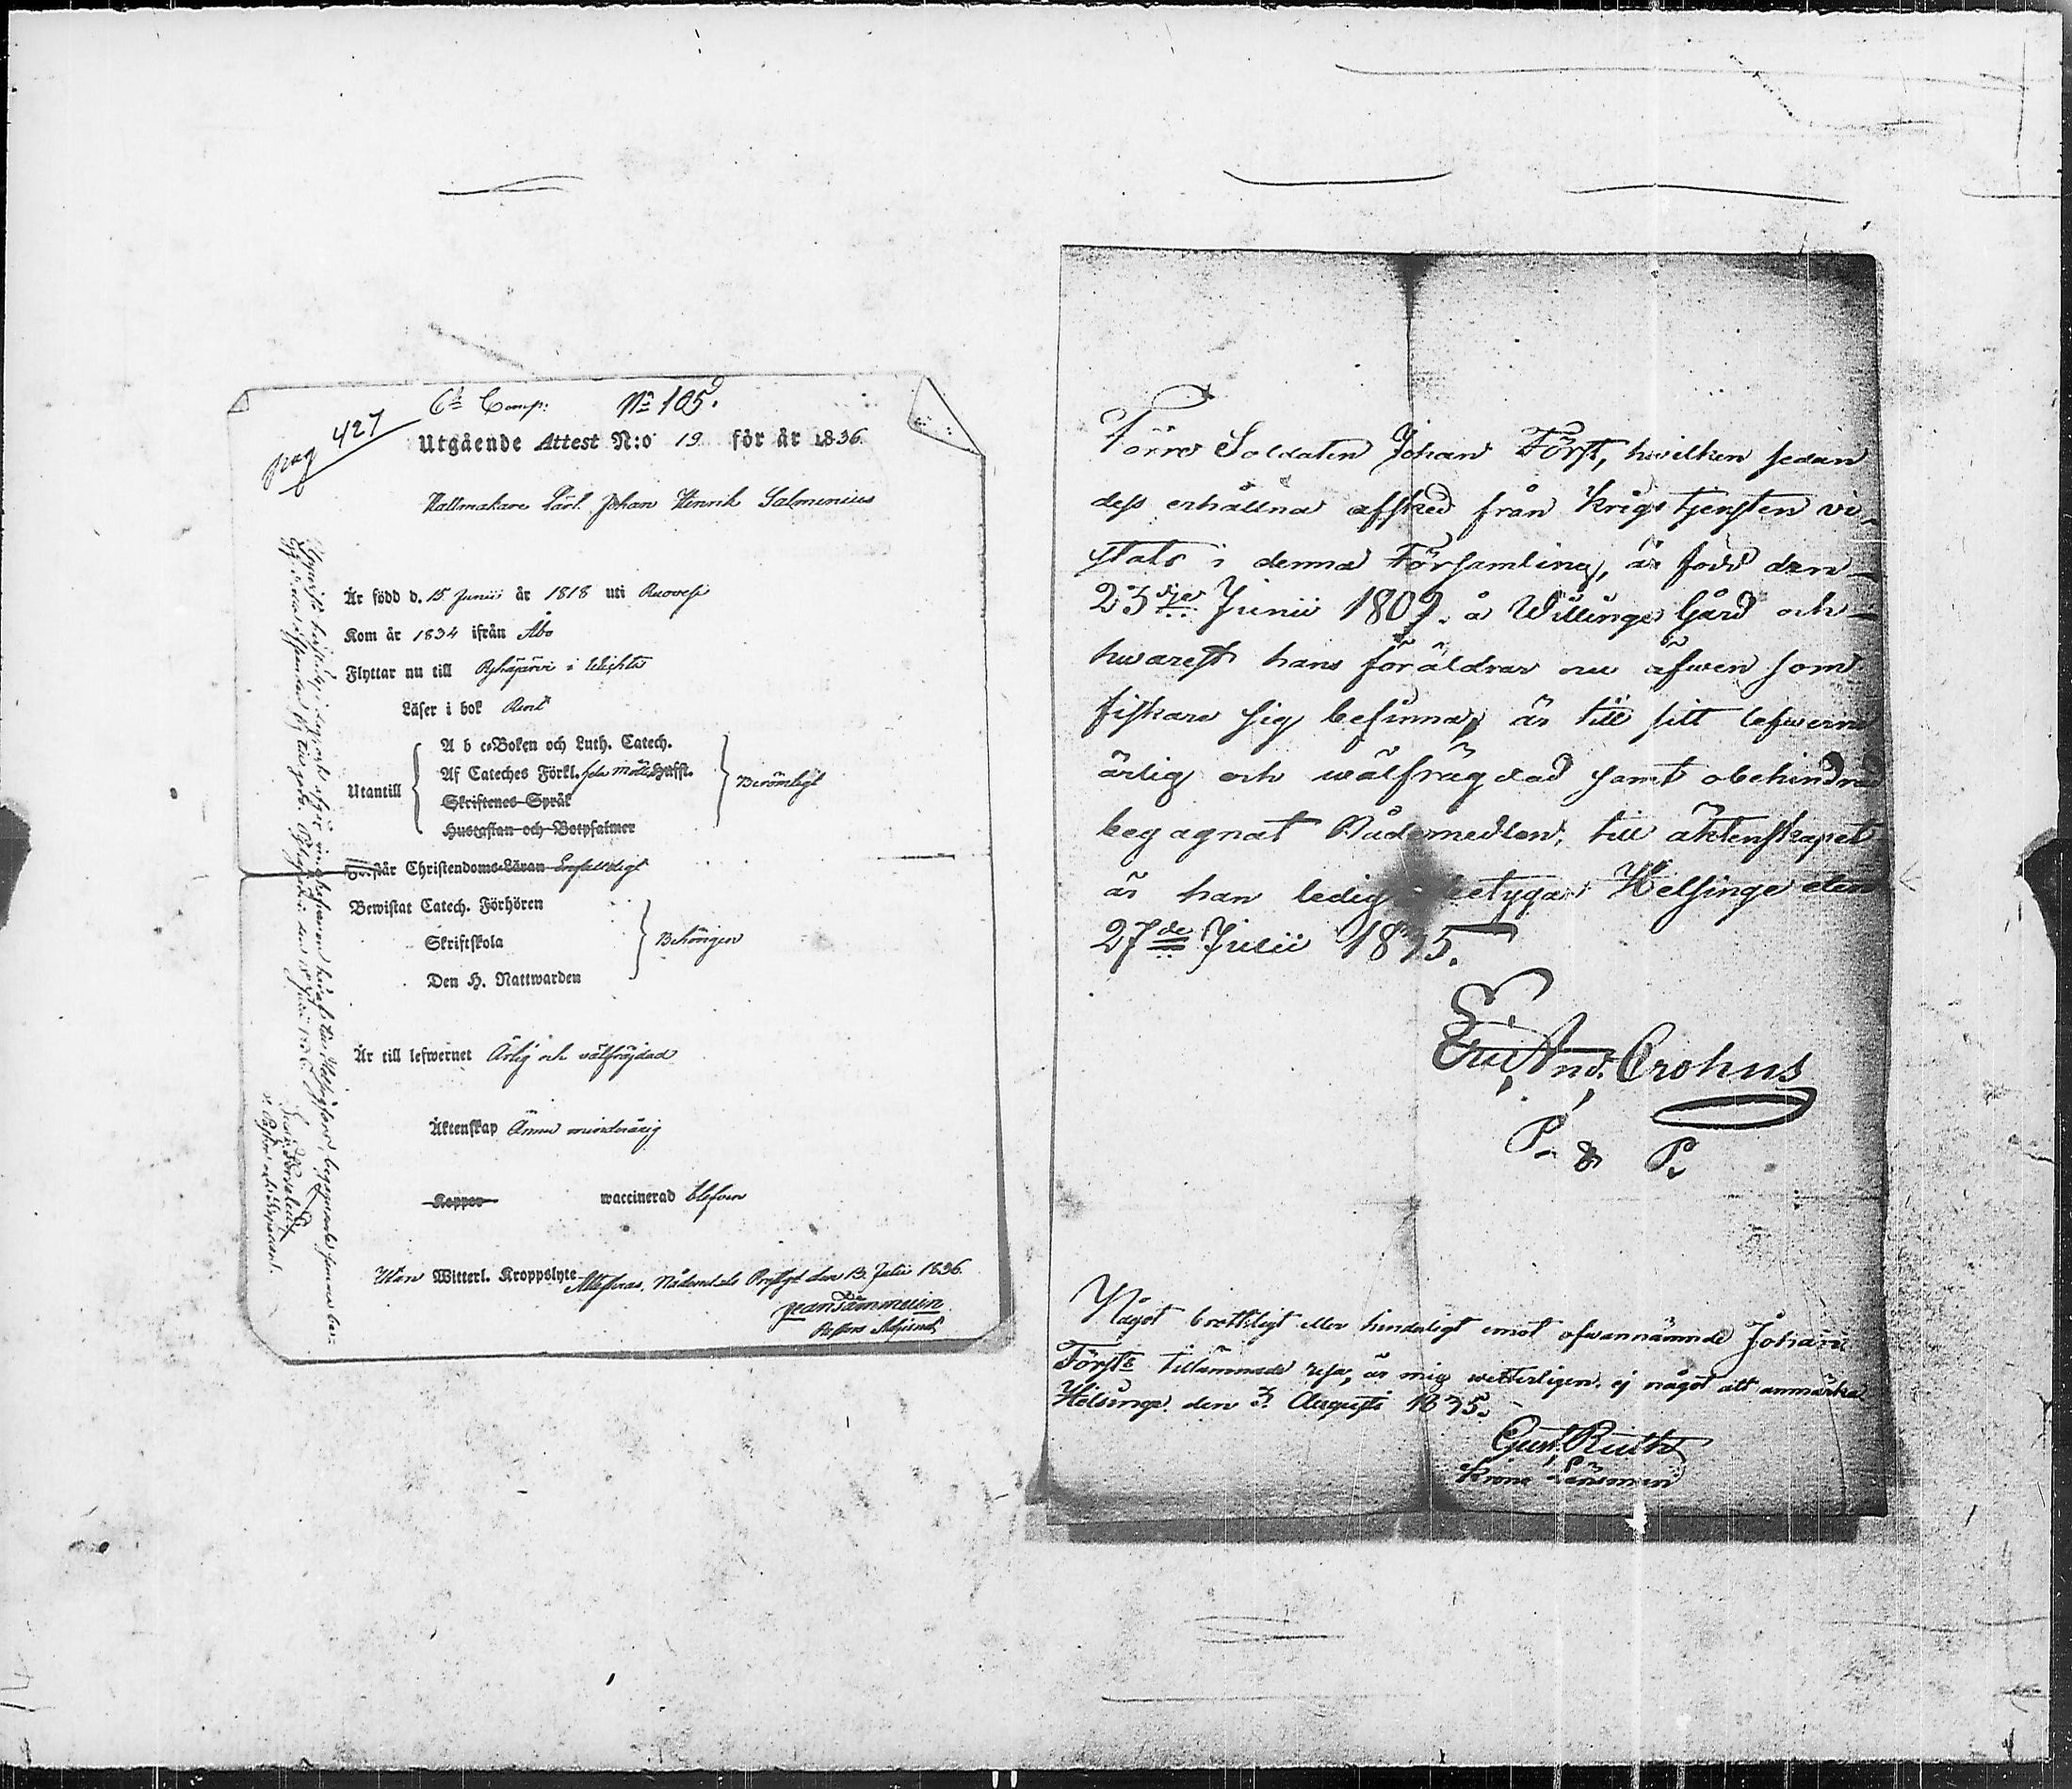 6te Comp: No 105.
pag 427
Utgående Attest N:o 19 för år 1836.
Hattmakare Lärl. Johan Henrik Salmenius
Är född d. 15 Junii år 1818 uti Ruovesi
Kom år 1834 ifrån Åbo
Flyttar nu till i Wichtis
Läser i bok Rent
Utantill
A b c-Boken och Luth. Catech.
Af Cateches Förkl. Hufst.
Skriftenes Språk
Hustaflan och Botpsalmer
Berömligt
Förstår Christendoms-Läran Enfaldeligt
Bewistat Catech. Förhören
Skriftskola
Den H. Nattwarden
Behörigen
Är till lefwernet Ärlig och välfräjdad
Äktenskap Ännu minderårig
Koppor waccinerad blefven
Utan Witterl. Kroppslyte Attesteras, Nådendals den 13 Julii 1836.
Pastors Adjunct
Förre Soldaten Johan Först, hvilken sedan
dess erhållna afsked från Krigstjensten vi-
stats i denna Församling, är född den
23dje Junii 1809. å Willinge Gård och
hwarest hans föräldrar nu äfwen som
fiskare sig befinna, är till sitt lefwerne
ärlig och wälfrägdad samt obehindrad
begagnat Nådemedlen, till äktenskapet
är han ledig betygar Helsinge den
27de Julii 1835.
Eric And. Crohns
P. & P.
Något brottsligt eller hinderligt emot ofwannämnde Johan
Försts tillämnade resa, är mig wetterligen ej något att anmärka
Helsinge den 3. Augusti 1835.
Gust. Ruth
Krono Länsman